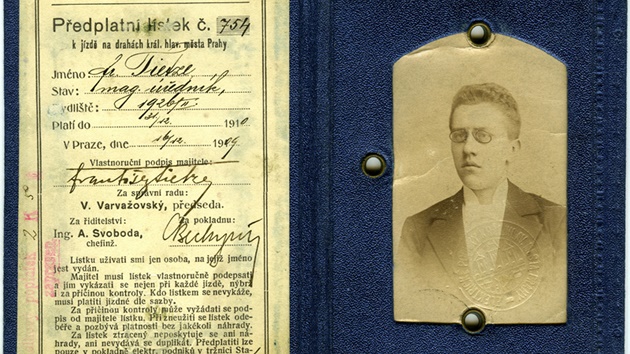 Předplatní lístek č. 754
k jízdě na drahách král. hlav. města Prahy
Jméno fr. Tietze
Stav: mag. úředník,
Bydliště: 1926/II
Platí do 31/12. 1910
V Praze, dne 16/12. 1909
Vlastnoruční podpis majitele:
František Tietze
Za správní radu:
V. Varvažovský, předseda.
Za ředitelství: Za pokladnu:
Ing. A. Svoboda,
chefinž.
Lístku užívati smí jen osoba, na jejíž jméno
jest vydán.
Majitel musí lístek vlastnoručně podepsati
a jím vykázati se nejen při každé jízdě, nýbrž
i za příčinou kontroly. Kdo lístkem se nevykáže,
musí platiti jízdné dle sazby.
Za příčinou kontroly může vyžádati se pod-
pis od majitele lístku. Při zneužití se lístek ode-
běře a pozbývá platnosti bez jakékoli náhrady.
Za lístek ztracený neposkytuje se ani ná-
hrady, ani nevydává se duplikát. Předplatiti lze
pouze v pokladně elektr. podniků v tržnici Sta-